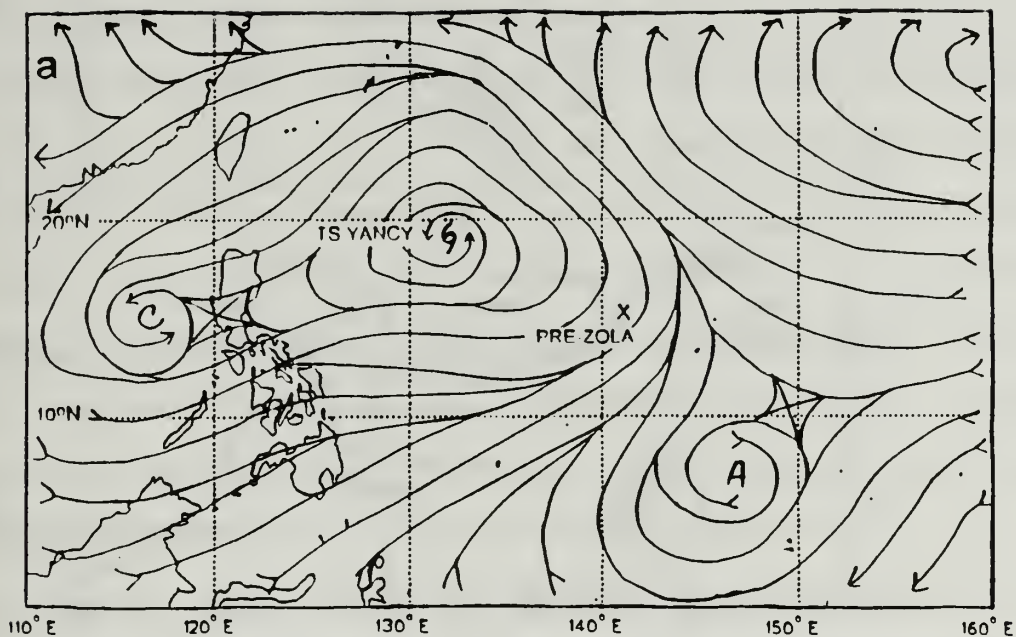 a
20ºN
TS YANCY
C
X
PRE-ZOLA
10ºN
A
110º E
120º E
130º E
140º E
150º E
160º E